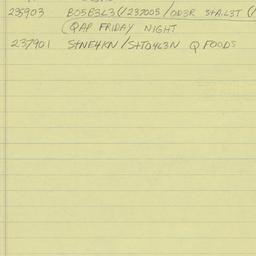 235903 BO5B3L3(1/237005/OD3R STAL3T (
(QAP FRIDAY NIGHT
237901 STNE4KN/STTO4L3N Q FOODS